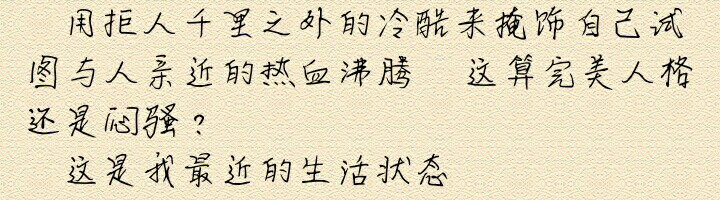 用拒人千里之外的冷酷来掩饰自己试
图与人亲近的热血沸腾 这算完美人格
还是闷骚?
这是我最近的生活状态